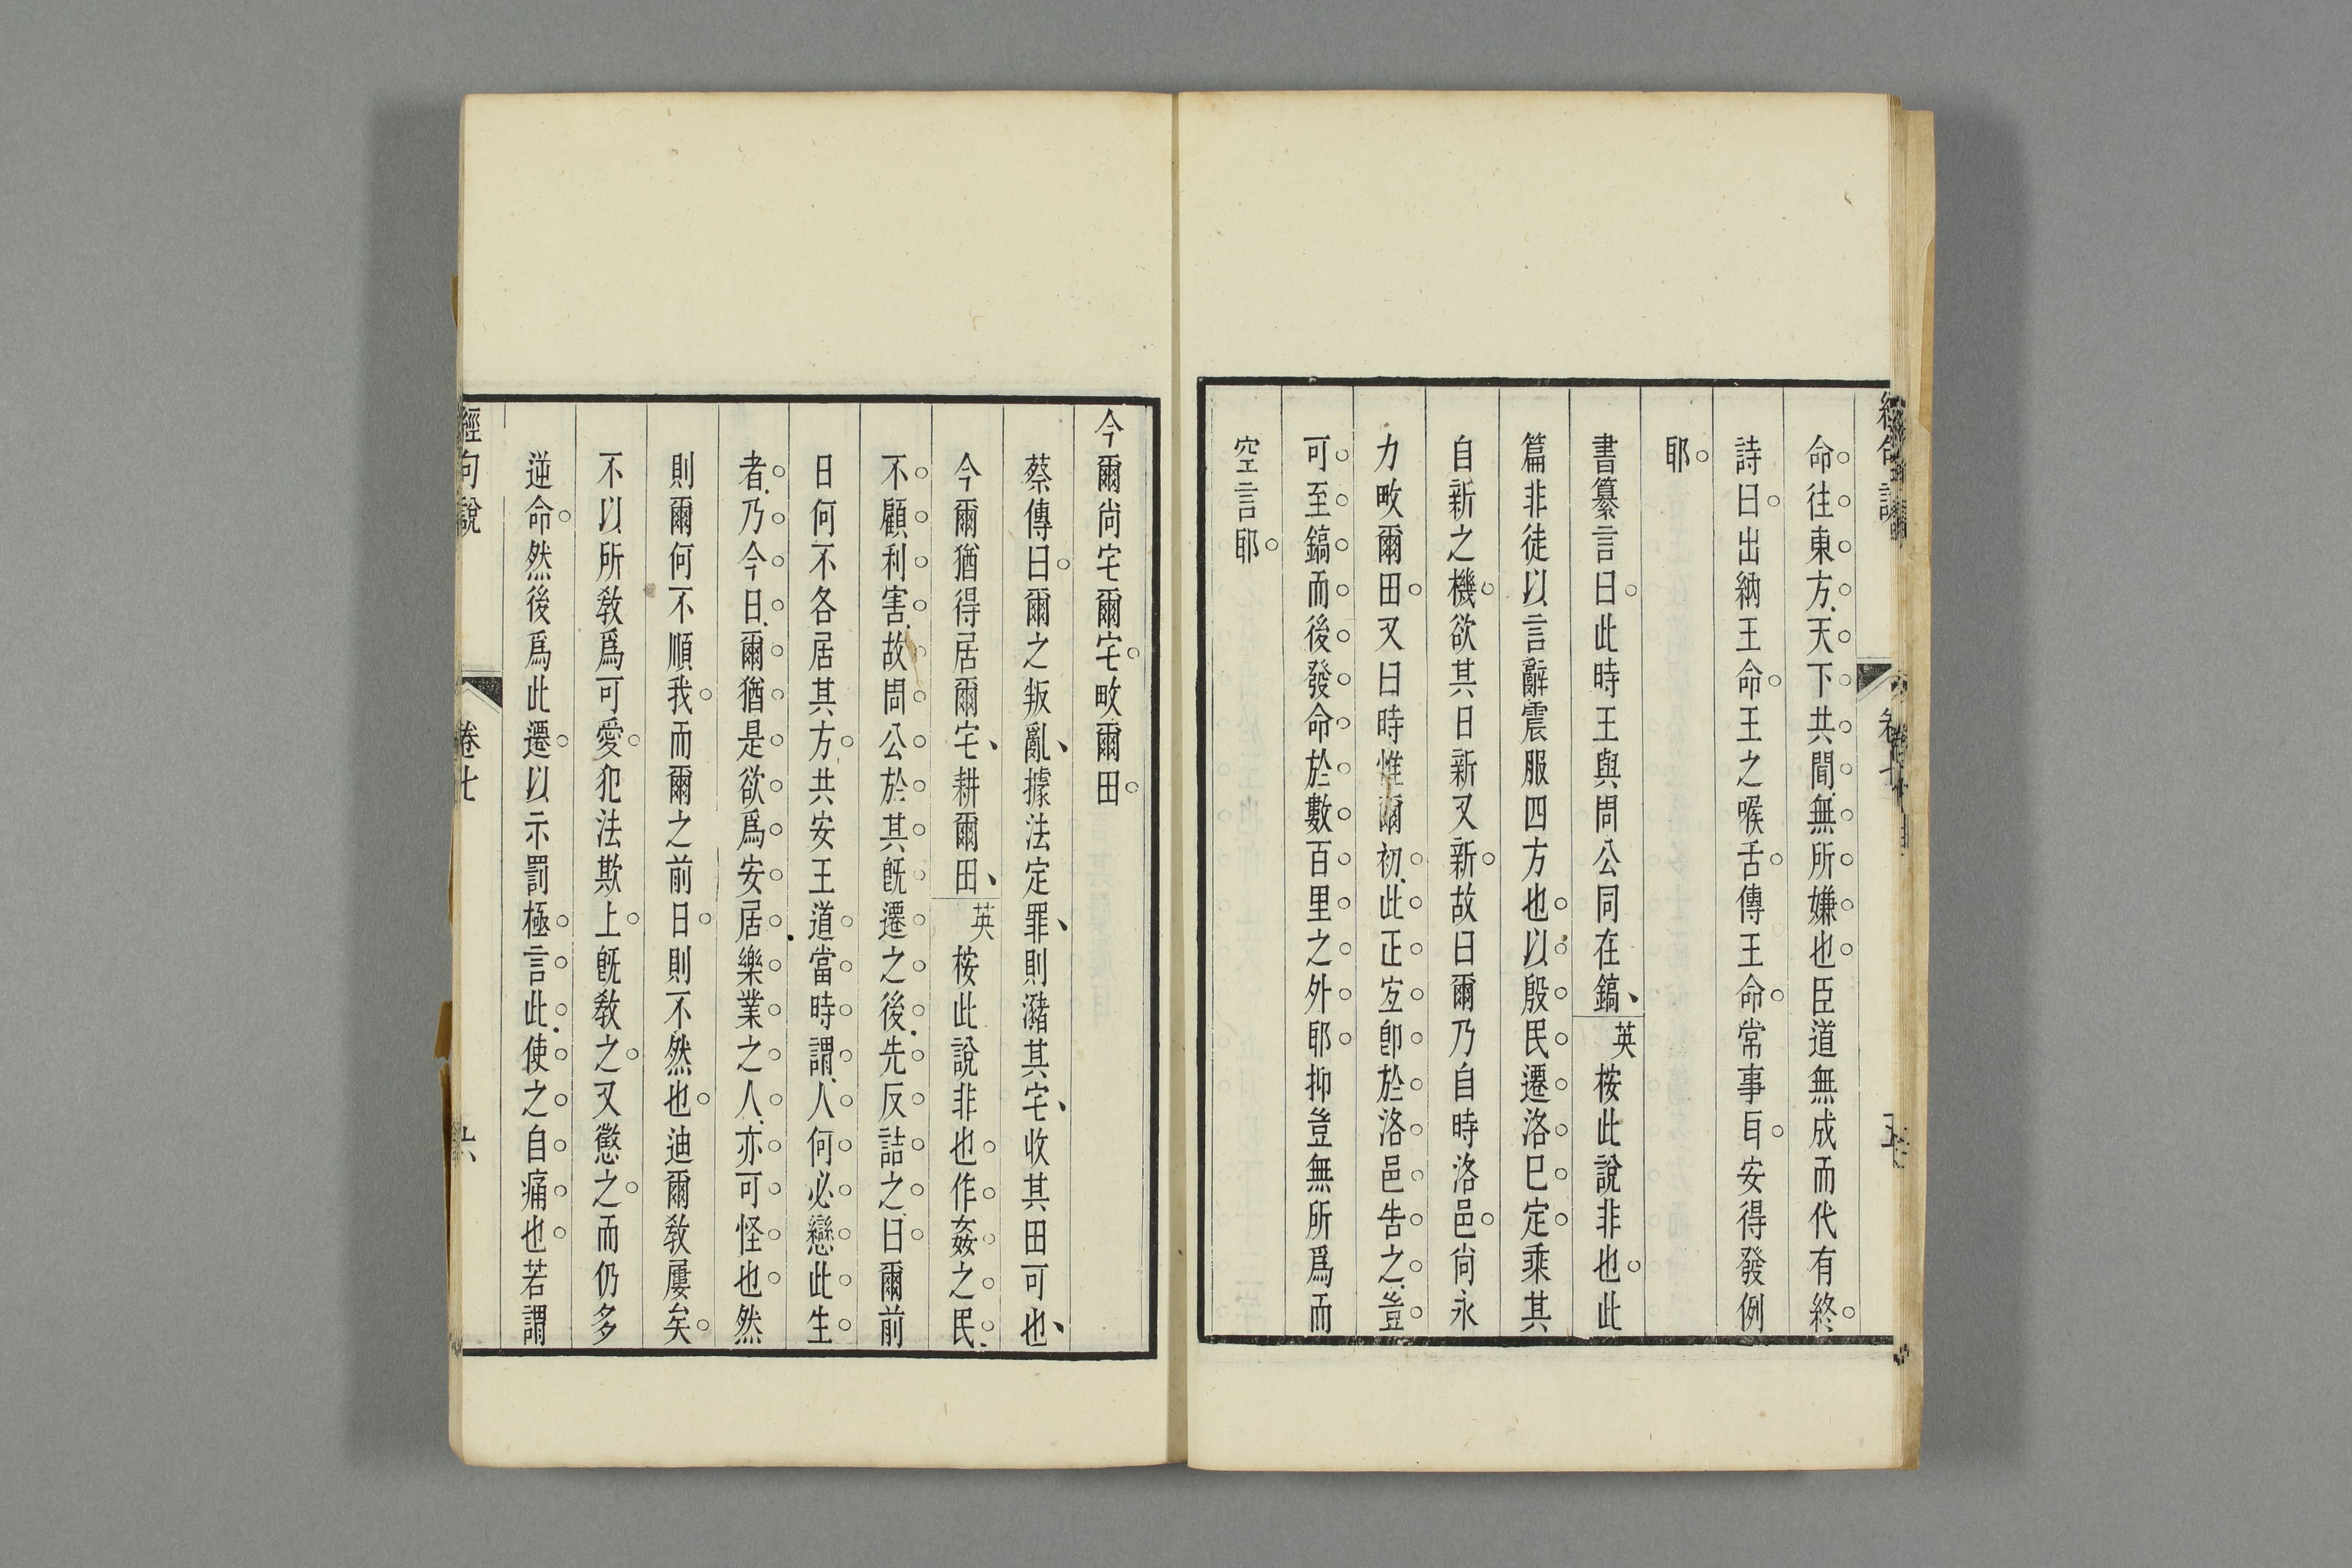 命往東方天下共聞無所嫌也臣道無成而代有終
詩曰出納王命王之喉舌傳王命常事耳安得發例
耶
書纂言曰此時王與周公同在鎬英按此說非也此
篇非徒以言辭震服四方也以殷民遷洛已定乘其
自新之機欲其日新又新故曰爾乃自時洛邑尚永
力畋爾田又曰時惟爾初此正宜即於洛邑告之豈
可至鎬而後發命於數百里之外耶抑豈無所爲而
空言耶
今爾尚宅爾宅畋爾田
蔡傳曰爾之叛亂據法定罪則瀦其宅收其田可也
今爾猶得居爾宅耕爾田英桉此說非也作姦之民
不顧利害故周公於其旣遷之後先反詰之曰爾前
日何不各居其方共安王道當時謂人何必戀此生
者乃今日爾猶是欲爲安居樂業之人亦可怪也然
則爾何不順我而爾之前日則不然也迪爾敎屢矣
不以所敎爲可愛犯法欺上旣敎之又懲之而仍多
逆命然後爲此遷以示罰極言此使之自痛也若謂
經句說 卷七 六